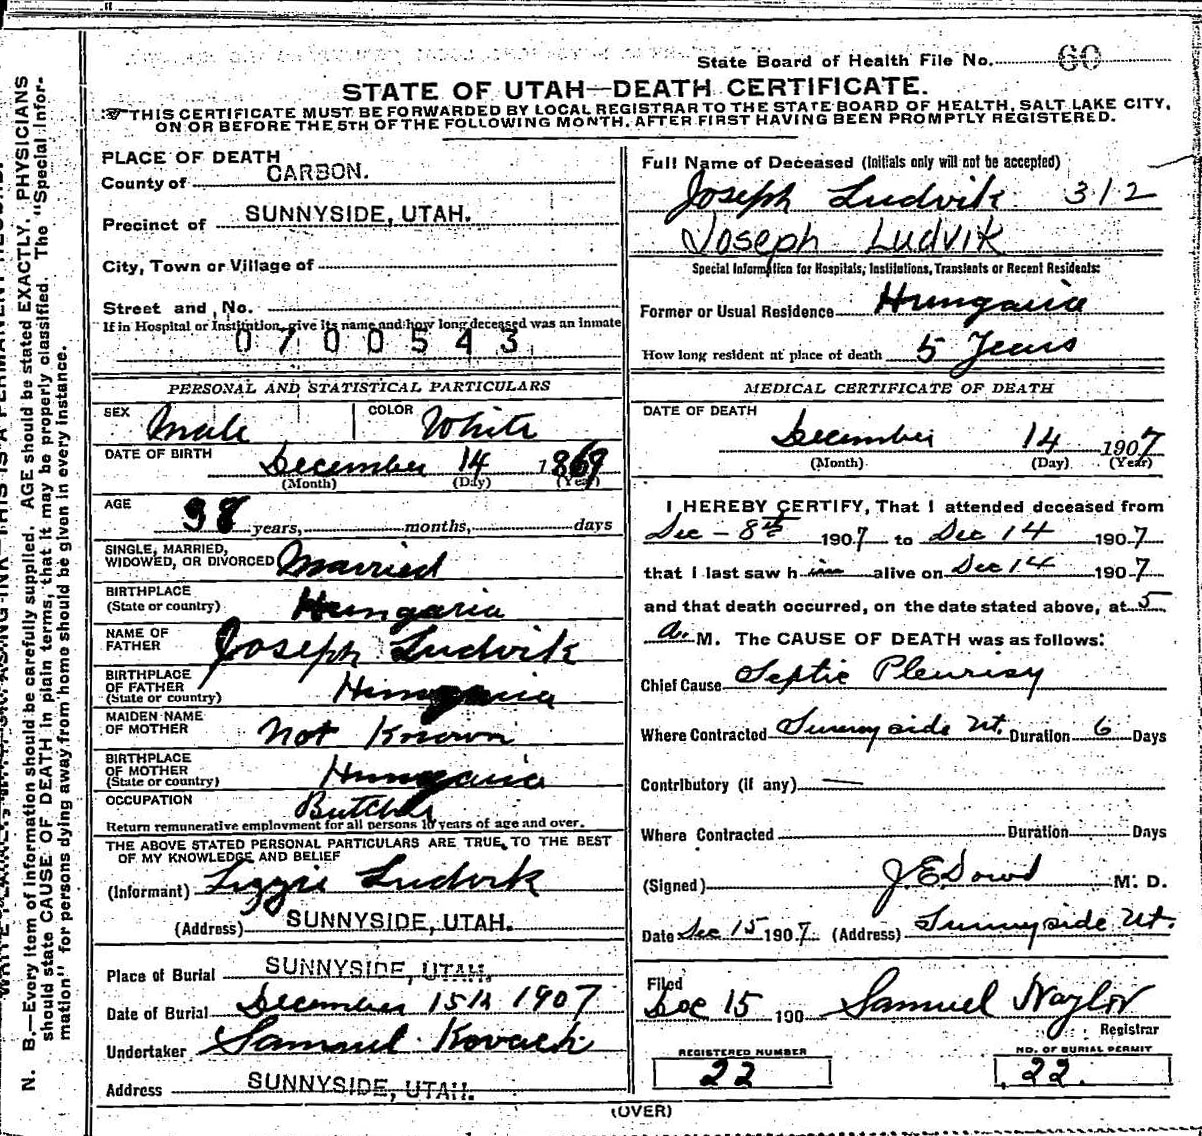 State Board of Health File No. 60
STATE OF UTAH—DEATH CERTIFICATE.
THIS CERTIFICATE MUST BE FORWARDED BY LOCAL REGISTRAR TO THE STATE BOARD OF HEALTH, SALT LAKE CITY,
ON OR BEFORE THE 5TH OF THE FOLLOWING MONTH, AFTER FIRST HAVING BEEN PROMPTLY REGISTERED.
PLACE OF DEATH
County of CARBON.
Precinct of SUNNYSIDE, UTAH.
City, Town or Village of
Street and No.
If in Hospital or Institution, give its name and how long deceased was an inmate
0700543
PERSONAL AND STATISTICAL PARTICULARS
SEX Male COLOR White
DATE OF BIRTH December 14 1869
(Month) (Day) (Year)
AGE 38 years, months, days
SINGLE, MARRIED,
WIDOWED, OR DIVORCED Married
BIRTHPLACE
(State or country) Hungaria
NAME OF
FATHER Joseph Ludvik
BIRTHPLACE
OF FATHER
(State or country) Hungaria
MAIDEN NAME
OF MOTHER Not Known
BIRTHPLACE
OF MOTHER
(State or country) Hungaria
OCCUPATION Butcher
Return remunerative employment for all persons 10 years of age and over.
THE ABOVE STATED PERSONAL PARTICULARS ARE TRUE TO THE BEST
OF MY KNOWLEDGE AND BELIEF
(Informant) Lizzie Ludvik
(Address) SUNNYSIDE, UTAH.
Place of Burial SUNNYSIDE, UTAH.
Date of Burial December 15th 1907
Undertaker Samuel Kovach
Address SUNNYSIDE, UTAH.
Full Name of Deceased (Initials only will not be accepted)
Joseph Ludvik 312
Joseph Ludvik
Special Information for Hospitals, Institutions, Transients or Recent Residents:
Former or Usual Residence Hungaria
How long resident at place of death 5 Years
MEDICAL CERTIFICATE OF DEATH
DATE OF DEATH
December 14 1907
(Month) (Day) (Year)
I HEREBY CERTIFY, That I attended deceased from
Dec – 8th 1907 to Dec 14 1907
that I last saw him alive on Dec 14 1907
and that death occurred, on the date stated above, at 5
a. M. The CAUSE OF DEATH was as follows:
Chief Cause Septic Pleurisy
Where Contracted Sunnyside Ut. Duration 6 Days
Contributory (if any) —
Where Contracted Duration Days
(Signed) J E Dowd M. D.
Date Dec 15 1907 (Address) Sunnyside Ut.
Filed
Dec 15 190 Samuel Naylor
Registrar
REGISTERED NUMBER
22
NO. OF BURIAL PERMIT
22.
(OVER)
N. B.—Every item of information should be carefully supplied. AGE should be stated EXACTLY. PHYSICIANS
should state CAUSE OF DEATH in plain terms, that it may be properly classified. The "Special Infor-
mation" for persons dying away from home should be given in every instance.